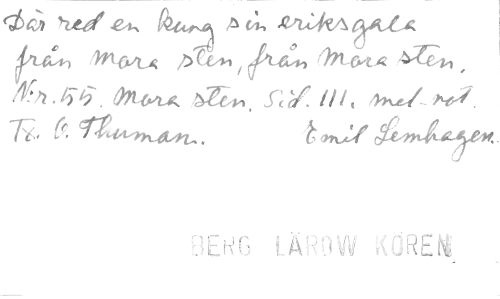 Där red en kung sin eriksgata
från Mora sten, från Mora sten.
N:r. 55. Mora sten. Sid. 111. mel. not.
Tx. O. Thuman. Emil Lemhagen.
BERG LÄROW KÖREN